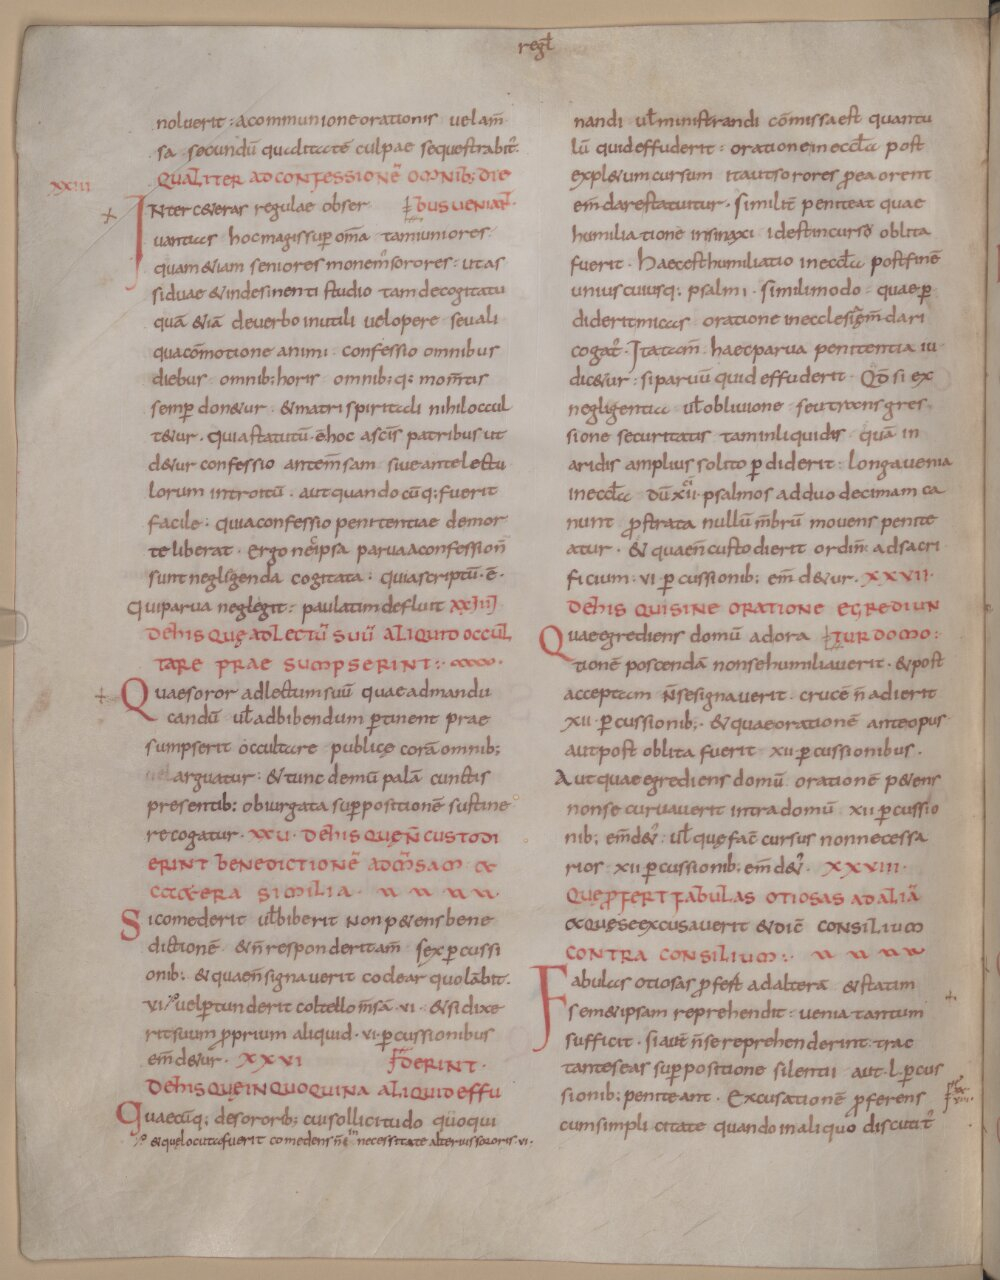 regł
noluerit : a communione orationis uel am̄
sa secundū qualitatē culpae sequestrabit᷑.
XXIII QUALITER AD CONFESSIONĒ OMNIB; DIE
INter cæteras regulae obser BUS UENIAT᷑.
uantias hoc magis sup om̄a tam iuniores.
quam &iam seniores monem᷑ sorores : ut as
siduae & indesinenti studio tam de cogitatu
quā &iā de uerbo inutili uel opere seu ali
qua cōmotione animi . confessio omnibus
diebus omnib; horis omnib; q; mom̄tis
semp don&ur . & matri spiritali nihil occul
t&ur . quia statutū .ē hoc a scīs patribus ut
d&ur confessio ante m̄sam siue ante lectu
lorum introitū . aut quando cūq; fuerit
facile : quia confessio penitentiae de mor
te liberat . Ergo nec ipsa parua a confession̄
sunt neglegenda cogitata : quia scriptū .ē.
Qui parua neglegit : paulatim defluit XXIIII
DE HIS QUĘ AD LECTŪ SUŪ ALIQUID OCCUL
TARE PRAE SUMPSERINT :
Quae soror ad lectum suū quae ad mandu
candū uł ad bibendum ptinent prae
sumpserit occultare publicę corā omnib;
arguatur : & tunc demū palā cunctis
presentib; obiurgata suppositionē sustine
re cogatur . XXU . DE HIS QUĘ N̄ CUSTODI
ERINT BENEDICTIONĒ AD M̄SAM &
C&ERA SIMILIA .
Si comederit uł biberit Non p&ens bene
dictionē & n̄ responderit am̄ sex pcussi
onib; & quae n̄ signauerit coclear quo lābit .
vi . uel ptunderit coltello m̄sā . vi . & si dixe
rit suum proprium aliquid . vi . pcussionibus
em̄d&ur . XXVI FUDERINT .
DE HIS QUĘ IN QUOQUINA ALIQUID EFFU
Quaecūq; de sororib; cui sollicitudo quoqui
& quę locuta fuerit comedens n̄ in necessitate alterius sororis . vi .
nandi uł ministrandi cōmissa est quantu
lū quid effuderit : oratione in eccła post
expl&um cursum ita ut sorores pro ea orent
em̄dare statuitur . Similit᷑ peniteat quae
humiliatione in sinaxi id est in cursō oblita
fuerit . Haec est humiliatio in eccła post finē
unius cuiusq; psalmi . simili modo quae p
diderit micas oratione in ecclesia em̄dari
cogat᷑ . Ita tam̄ haec parua penitentia iu
dic&ur : si paruū quid effuderit . Qđ si ex
negligentia uł obliuione seu transgres
sione securitatis tam in liquidis quā in
aridis amplius solito pdiderit : longa uenia
in eccła dū xii psalmos ad duodecimam ca
nunt prostrata nullū m̄brū mouens penite
atur . & quae n̄ custodierit ordin̄ ad sacri
ficium : vi pcussionib; em̄d&ur . XXVII
DE HIS QUI SINE ORATIONE EGREDIUN
Quae egrediens domū adora TUR DOMO :
tionē poscendā non se humiliauerit . & post
acceptam n̄ se signauerit . crucē n̄ adierit
XII . pcussionib; . & quae orationē ante opus
aut post oblita fuerit XII pcussionibus .
Aut quae egrediens domū orationē p&ens
non se curuauerit intra domū XII pcussio
nib; em̄d&᷑ . uł quę facē cursus non necessa
rios XII pcussionib; em̄d&᷑ . XXVIII .
QUĘ PROFERT FABULAS OTIOSAS AD ALIĀ
& QUĘ SE EXCUSAUERIT & DIC̄ CONSILIUM
CONTRA CONSILIUM :
Fabulas otiosas profest ad alterā & statim
sem&ipsam reprehendit : uenia tantum
sufficit . si aut̄ n̄ se reprehenderint . trac
tantes eas suppositione silentii aut . L . pcus
sionib; peniteant . Excusationē proferens
cum simplicitate quando in aliquo discutit᷑